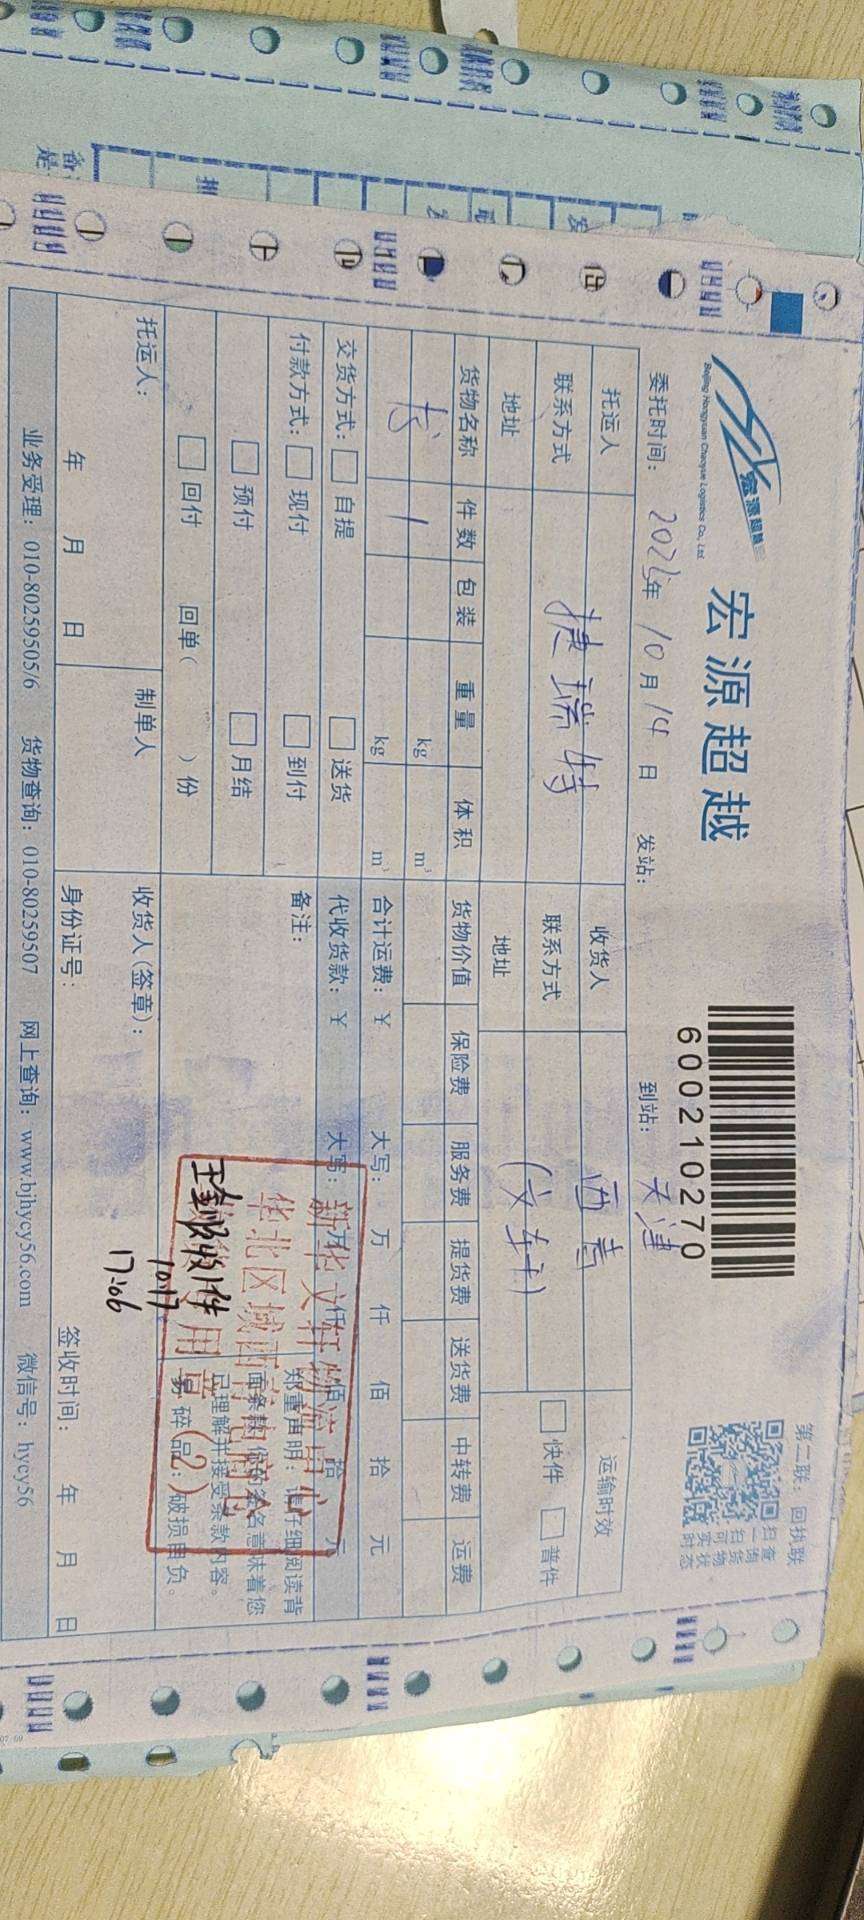 宏源超越
Beijing Hongyuan Chaoyue Logistics Co., Ltd
600210270
第二联：回执联
扫一扫可实时
查询货物状态
委托时间： 年 10 月 14 日 发站： 到站： 天津
托运人 捷瑞特 收货人 西青 运输时效
联系方式 联系方式 (文轩) 快件 普件
地址 地址
货物名称 件数 包装 重量 体积 货物价值 保险费 服务费 提货费 送货费 中转费 运费
书 1 kg m³
kg m³ 合计运费：￥ 大写： 万 仟 佰 拾 元
交货方式： 自提 送货 代收货款：￥ 大写： 万 仟 佰 拾 元
付款方式： 现付 到付 备注：
预付 月结
回付 回单( )份
郑重声明：请仔细阅读背
面条款，您的签名意味着您
已理解并接受条款内容。
易碎品：破损自负。
新华文轩物流中心
华北区域西青
用章
(2)
收1件
10.17
17:06
托运人： 制单人 收货人(签章)：
年 月 日 身份证号： 签收时间： 年 月 日
业务受理：010-80259505/6 货物查询：010-80259507 网上查询：www.bjhycy56.com 微信号：hycy56